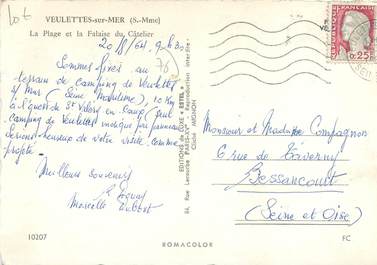 Lot
VEULETTES-sur-MER (S.-Mme)
La Plage et la Falaise du Câtelier
20/8/64. 9h30
76
Sommes fixés au
terrain de camping de Veulettes
s/ Mer (Seine Maritime), 10 Km
à l'ouest de St Valéry en Caux (seul
camping de Veulettes indiqué par panneau
serions heureux de votre visite comme
projeté.
Meilleurs souvenirs
Marcelle
10207
EDITIONS de LUXE "ESTEL"
84, Rue Lecourbe PARIS-XVe - Reproduction interdite -
Cliché MIGNON
ROMACOLOR
0,25
Monsieur et Madame Compagnon
6 rue de Taverny
Bessancourt
(Seine et Oise)
FC